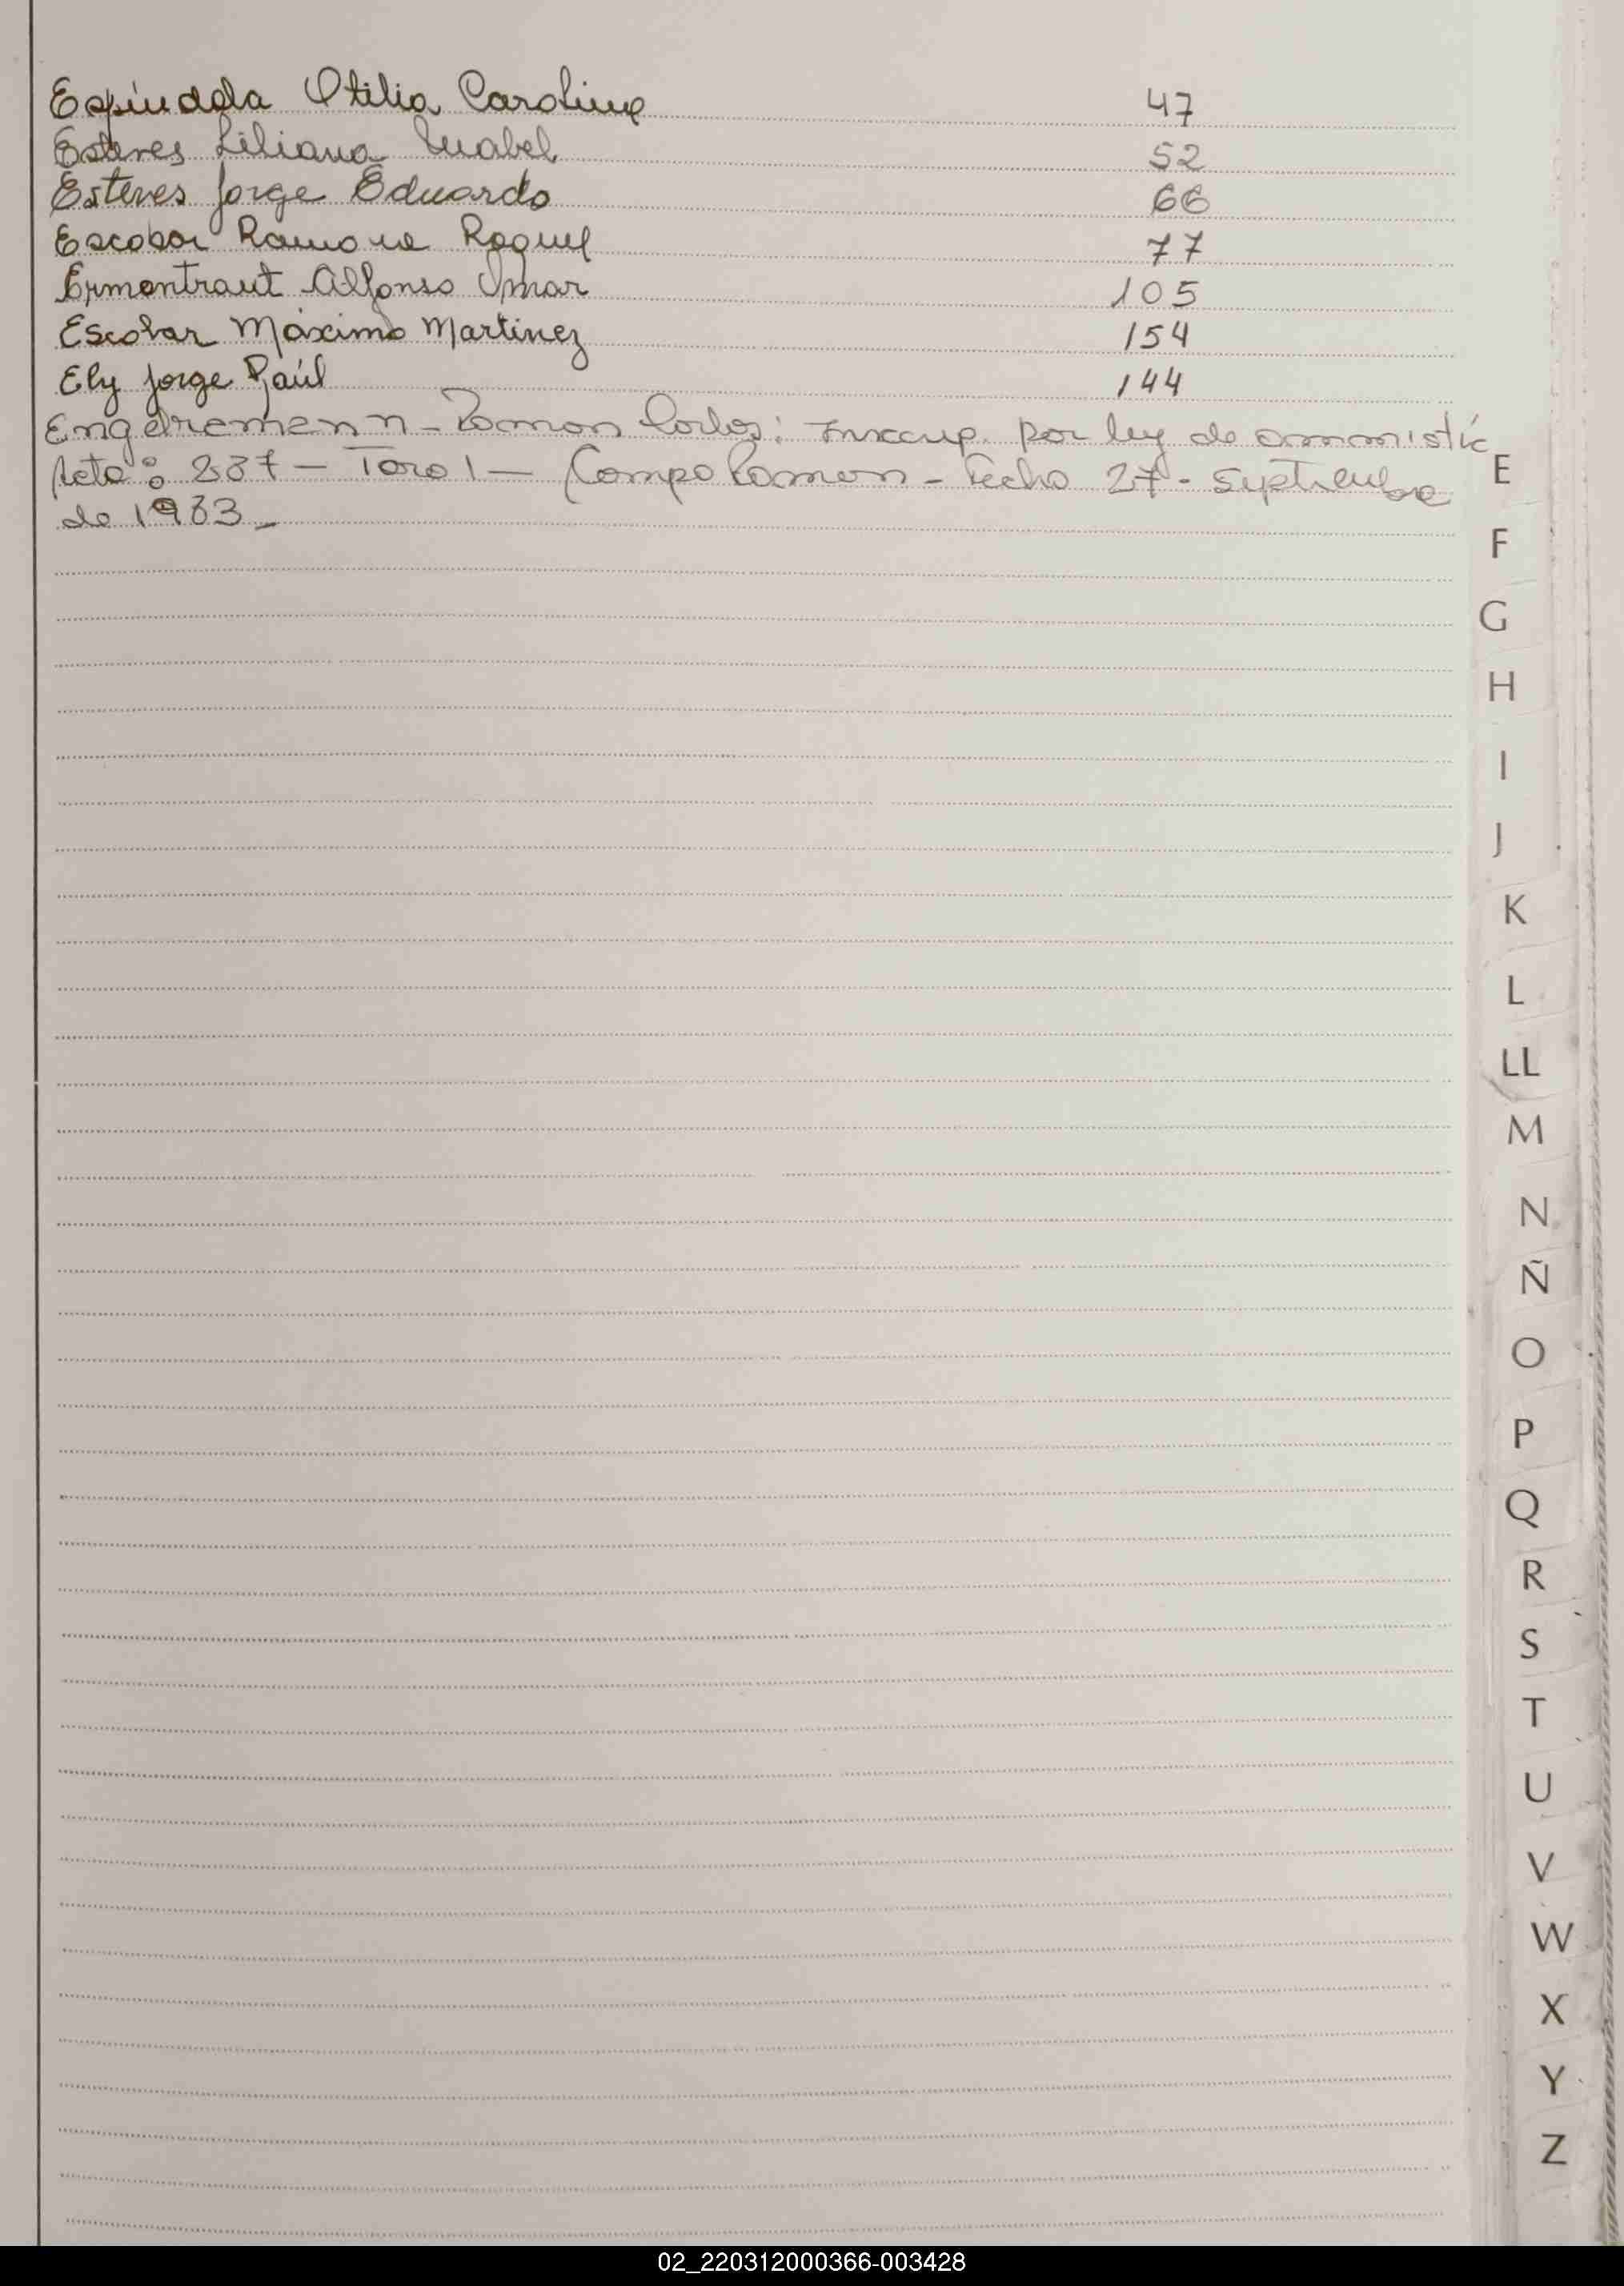 Espíndola Otilia Carolina 47
Esteves Liliana Mabel 52
Esteves Jorge Eduardo 66
Escobar Ramona Raquel 77
Ermantraut Alfonso Omar 105
Escobar Máximo Martinez 154
Ely Jorge Raúl 144
Ramon Carlos: Inscrip. por ley de
Acta: 237 - Tomo I - Campo Ramon - Fecha 27 - Septiembre
de 1983 -
E
F
G
H
I
J
K
L
LL
M
N
Ñ
O
P
Q
R
S
T
U
V
W
X
Y
Z
02_220312000366-003428